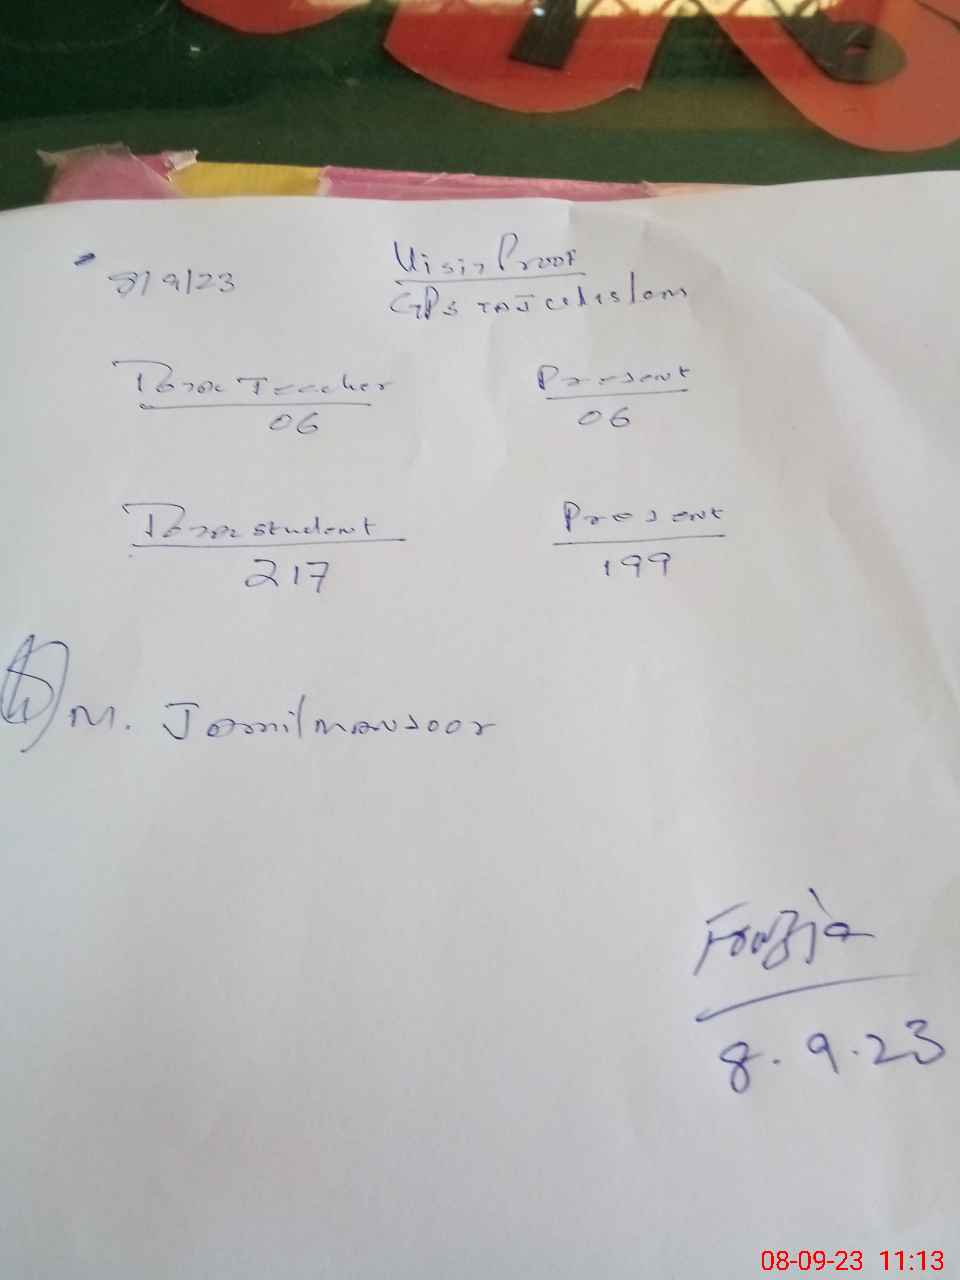 8/9/23
Visit Proof
GPS TAJ ul islam
Total Teacher
06
Present
06
Total student
217
Present
199
M. Jamil mansoor
Fouzia
8.9.23
08-09-23 11:13